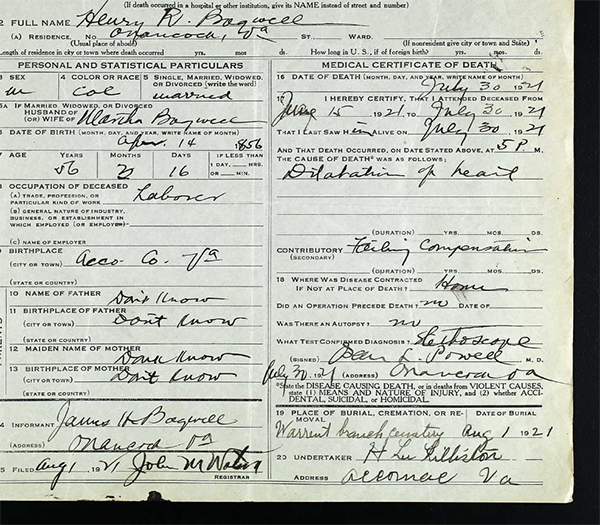 (If death occurred in a hospital or other institution, give its NAME instead of street and number)
2 FULL NAME Henry R. Bagwell
(A) RESIDENCE. NO. Onancock, Va ST. WARD.
(Usual place of abode) (If nonresident give city or town and State)
Length of residence in city or town where death occurred yrs. mos. ds. How long in U. S., if of foreign birth? yrs. mos. ds.
PERSONAL AND STATISTICAL PARTICULARS
3 SEX
m
4 COLOR OR RACE
col
5 SINGLE, MARRIED, WIDOWED, OR DIVORCED (write the word)
married
5A IF MARRIED, WIDOWED, OR DIVORCED
HUSBAND OF
(OR) WIFE OF Martha Bagwell
6 DATE OF BIRTH (MONTH, DAY, AND YEAR, WRITE NAME OF MONTH)
Apr. 14 1856
7 AGE YEARS MONTHS DAYS IF LESS THAN
1 DAY, HRS.
OR MIN.
56 3 16
8 OCCUPATION OF DECEASED
(A) TRADE, PROFESSION, OR
PARTICULAR KIND OF WORK Laborer
(B) GENERAL NATURE OF INDUSTRY,
BUSINESS, OR ESTABLISHMENT IN
WHICH EMPLOYED (OR EMPLOYER)
(C) NAME OF EMPLOYER
9 BIRTHPLACE
(CITY OR TOWN) Acco. Co. Va
(STATE OR COUNTRY)
10 NAME OF FATHER Don't Know
11 BIRTHPLACE OF FATHER
(CITY OR TOWN) Don't Know
(STATE OR COUNTRY)
12 MAIDEN NAME OF MOTHER Don't Know
13 BIRTHPLACE OF MOTHER Don't Know
(STATE OR COUNTRY)
14 INFORMANT James H. Bagwell
(ADDRESS) Onancock Va
15 FILED Aug 1 1921 John M Watson
REGISTRAR
MEDICAL CERTIFICATE OF DEATH
16 DATE OF DEATH (MONTH, DAY, AND YEAR, WRITE NAME OF MONTH)
July 30 1921
17 I HEREBY CERTIFY, THAT I ATTENDED DECEASED FROM
June 15 1921 TO July 30 1921
THAT I LAST SAW Him ALIVE ON July 30 1921
AND THAT DEATH OCCURRED, ON DATE STATED ABOVE, AT 5 P. M.
THE CAUSE OF DEATH* WAS AS FOLLOWS:
Dilatation of heart
(DURATION) YRS. MOS. DS.
CONTRIBUTORY Failing Compensation
(SECONDARY)
(DURATION) YRS. MOS. DS.
18 WHERE WAS DISEASE CONTRACTED
IF NOT AT PLACE OF DEATH? Home
DID AN OPERATION PRECEDE DEATH? no DATE OF
WAS THERE AN AUTOPSY? no
WHAT TEST CONFIRMED DIAGNOSIS? Stethoscope
(SIGNED) L. Powell M. D.
July 30. 1921 (ADDRESS) Onancock Va
*State the DISEASE CAUSING DEATH, or in deaths from VIOLENT CAUSES, state (1) MEANS AND NATURE OF INJURY, and (2) whether ACCIDENTAL, SUICIDAL, or HOMICIDAL.
19 PLACE OF BURIAL, CREMATION, OR REMOVAL DATE OF BURIAL
branch cemetery Aug 1 1921
20 UNDERTAKER H Lee Lilliston
ADDRESS Accomac Va